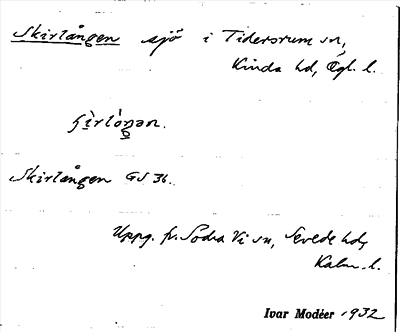 Skirlången sjö i Tidersrum sn,
Kinda hd, Ögl. l.
Skirlången GS 36.
Uppg. fr. Södra Vi sn, Sevede hd,
Kalm. l.
Ivar Modéer 1932